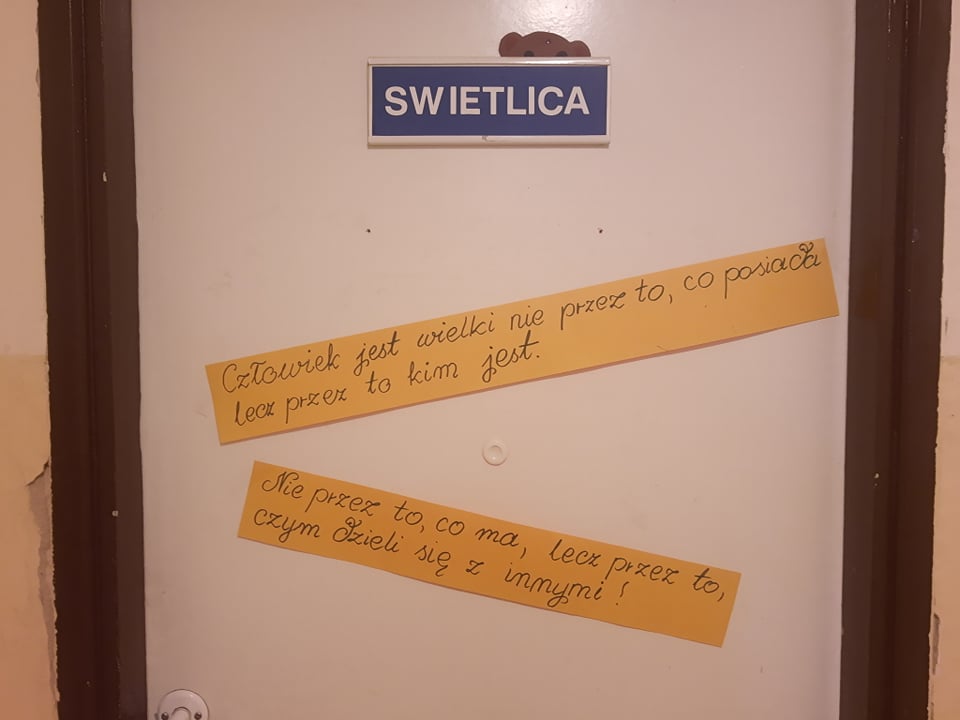 SWIETLICA
Człowiek jest wielki nie przez to, co posiada
lecz przez to kim jest.
Nie przez to, co ma, lecz przez to,
czym dzieli się z innymi!